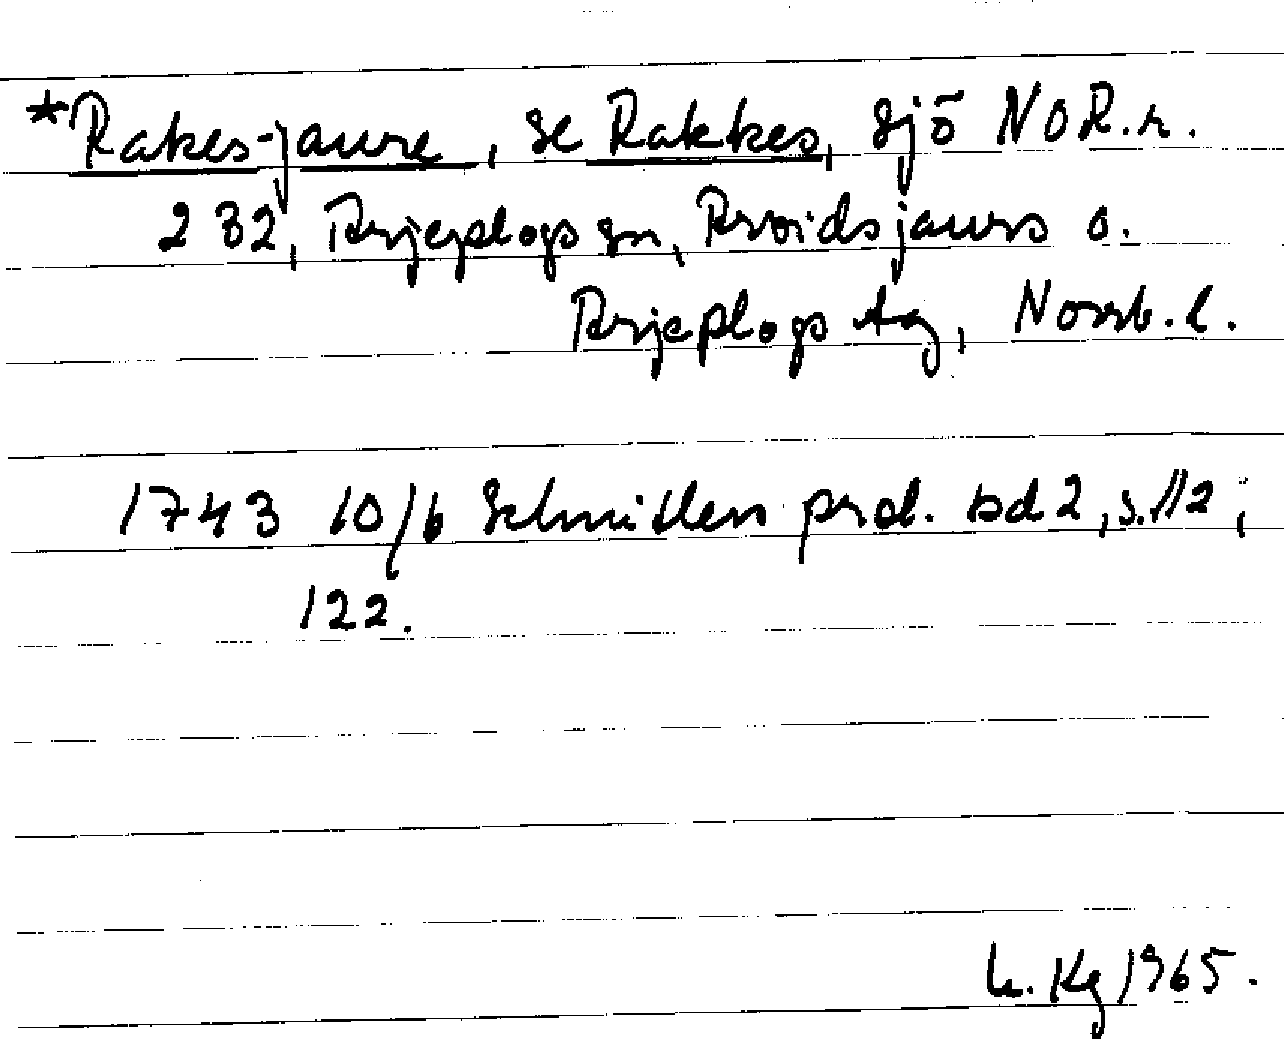 *Rakes-jaure, se Rakkes, sjö NOR.r.
232, Arjeplogs sn, Arvidsjaurs o.
Arjeplogs tg, Norrb.l.
1743 10/6 Schnitlers prot. bd 2, s.112;
122.
Kg 1965.